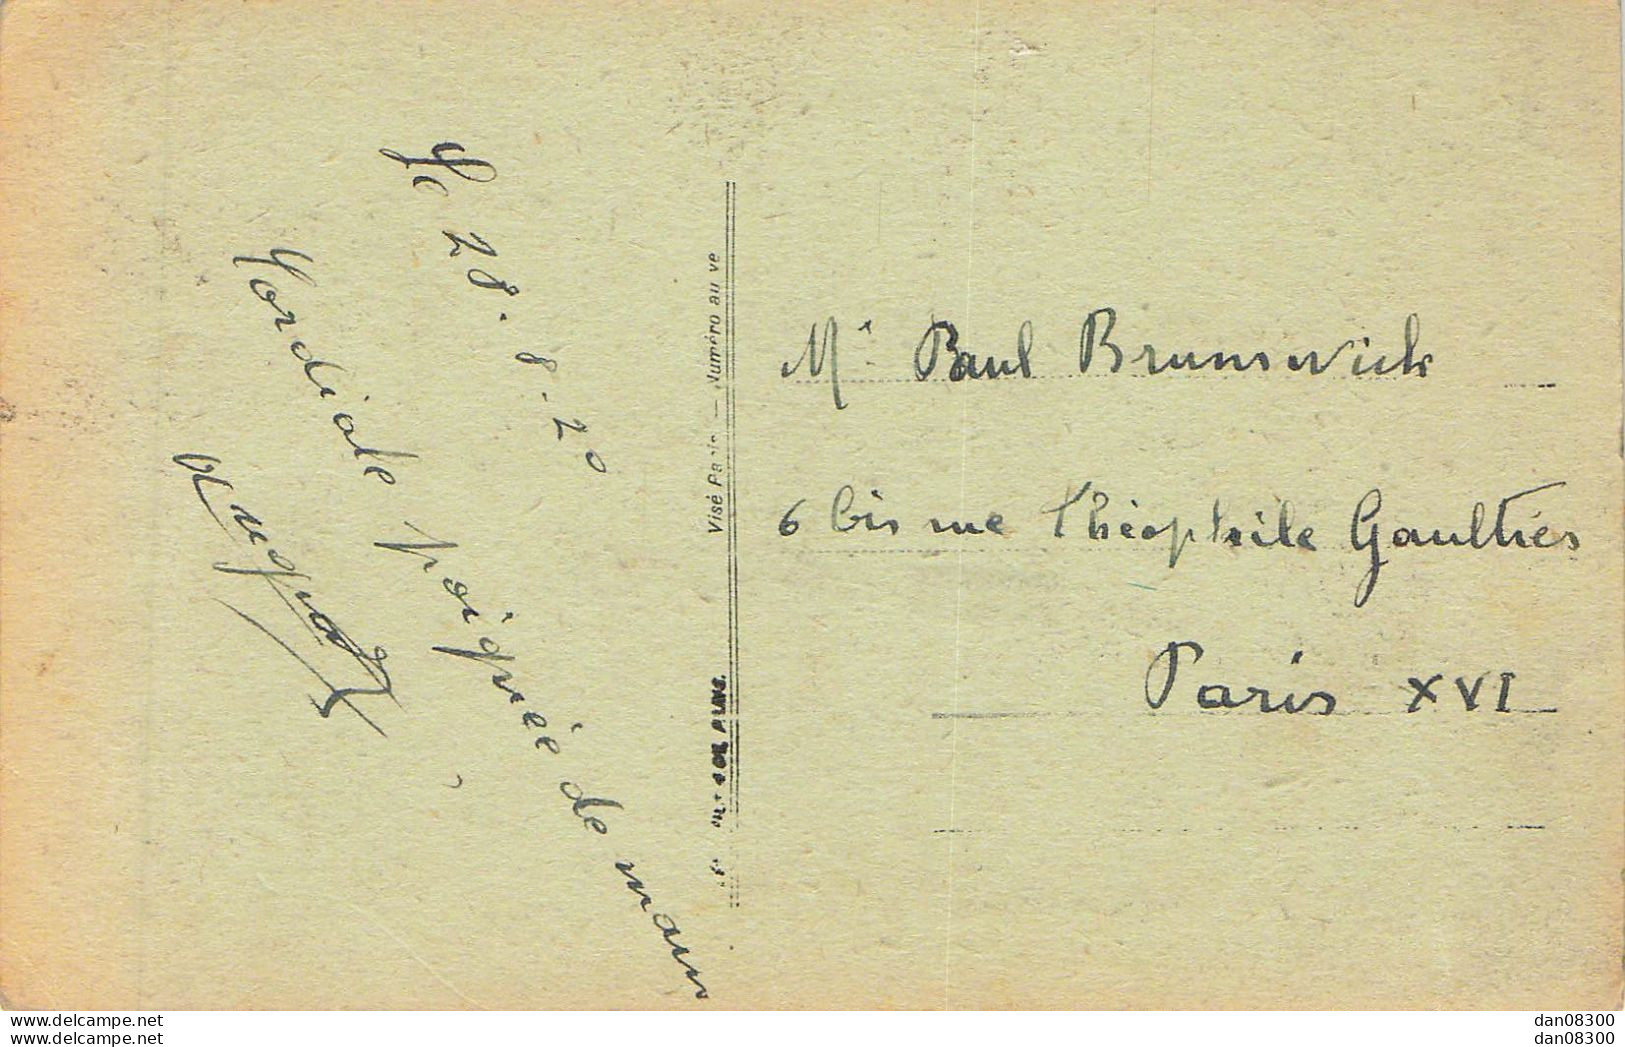 Le 28.8.20
Cordiale poignée de main
Visé Paris — Numéro au ve
Mr Paul Brunswick
6 bis rue Théophile Gaultier
Paris XVI
www.delcampe.net
www.delcampe.net
dan08300
dan08300